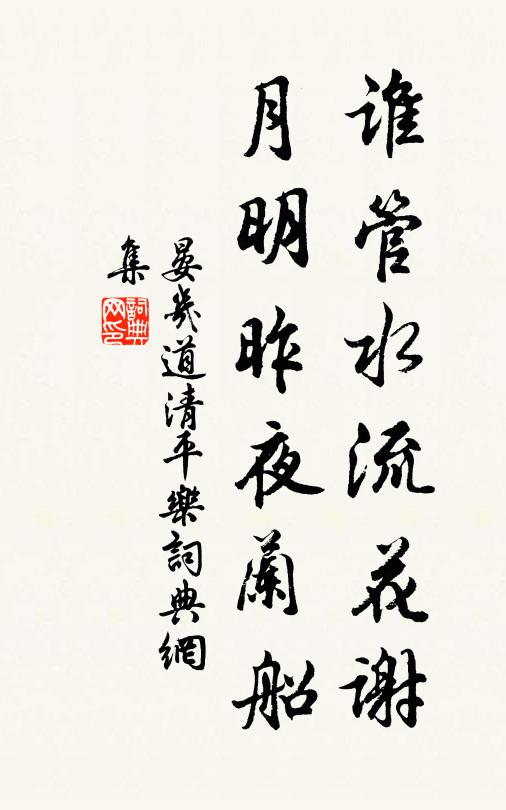 誰管水流花謝
月明昨夜蘭船
晏幾道清平樂詞典網
集
詞典網印